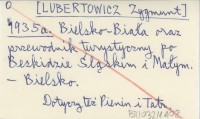 0 [LUBERTOWICZ Zygmunt]
1935a. Bielsko-Biała oraz
przewodnik turystyczny po
Beskidzie Śląskim i Małym.
- Bielsko.
Dotyczy też Pienin i Tatr